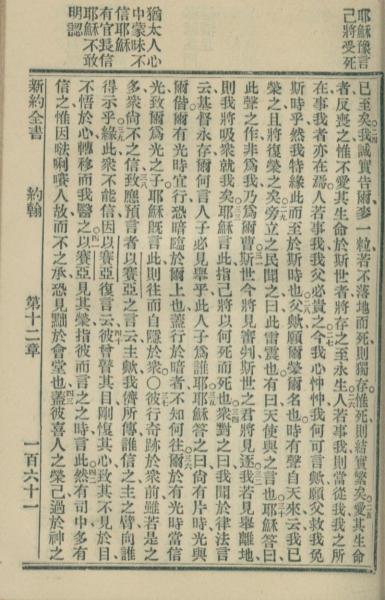 耶穌豫言
己將受死
已至矣我誠實告爾麥一粒若不落地而死則獨存惟死則結實繁矣愛其生命
者反喪之惟不愛其生命於斯世者將存之至永生人若事我則當從我我之所
在事我者亦在焉人若事我我父必貴之今我心忡忡我何可言歟願父救我免
斯時乎然我特緣此而至於斯時也父歟願爾榮爾名也時有聲自天來云我已
榮之且將復榮之矣旁立之民聞之曰此雷震也有曰天使與之言也耶穌答曰
此聲之作非爲我乃爲爾曹斯世今將見審判斯世之君將見逐我若見舉離地
則我將吸衆就我矣耶穌言此指己將以何死而死也衆對之曰我聞於律法言
云基督永存爾何言人子必見舉乎此人子爲誰耶耶穌答之曰尙有片時光與
爾偕爾有光時宜行恐暗臨於爾上也蓋行於暗者不知何往爾於有光時當信
猶太人心
中蒙昧不
信耶穌
有官長信
耶穌不敢
明認
光致爾爲光之子耶穌既言此則往而自隱於衆〇彼行奇跡於衆前雖若是之
多衆尙不之信致應預言者以賽亞之言云主歟我儕所傳誰信之主之臂向誰
得示乎緣此衆不能信因以賽亞復言云彼曾瞽其目剛愎其心致其不見於目
不悟於心轉移而我醫之以賽亞見其榮指彼而言之之時言此然有司中多有
信之惟因唎人故而不之承恐見黜於會堂也蓋彼喜人之榮己過於神之
新約全書 約翰 第十二章 一百六十一